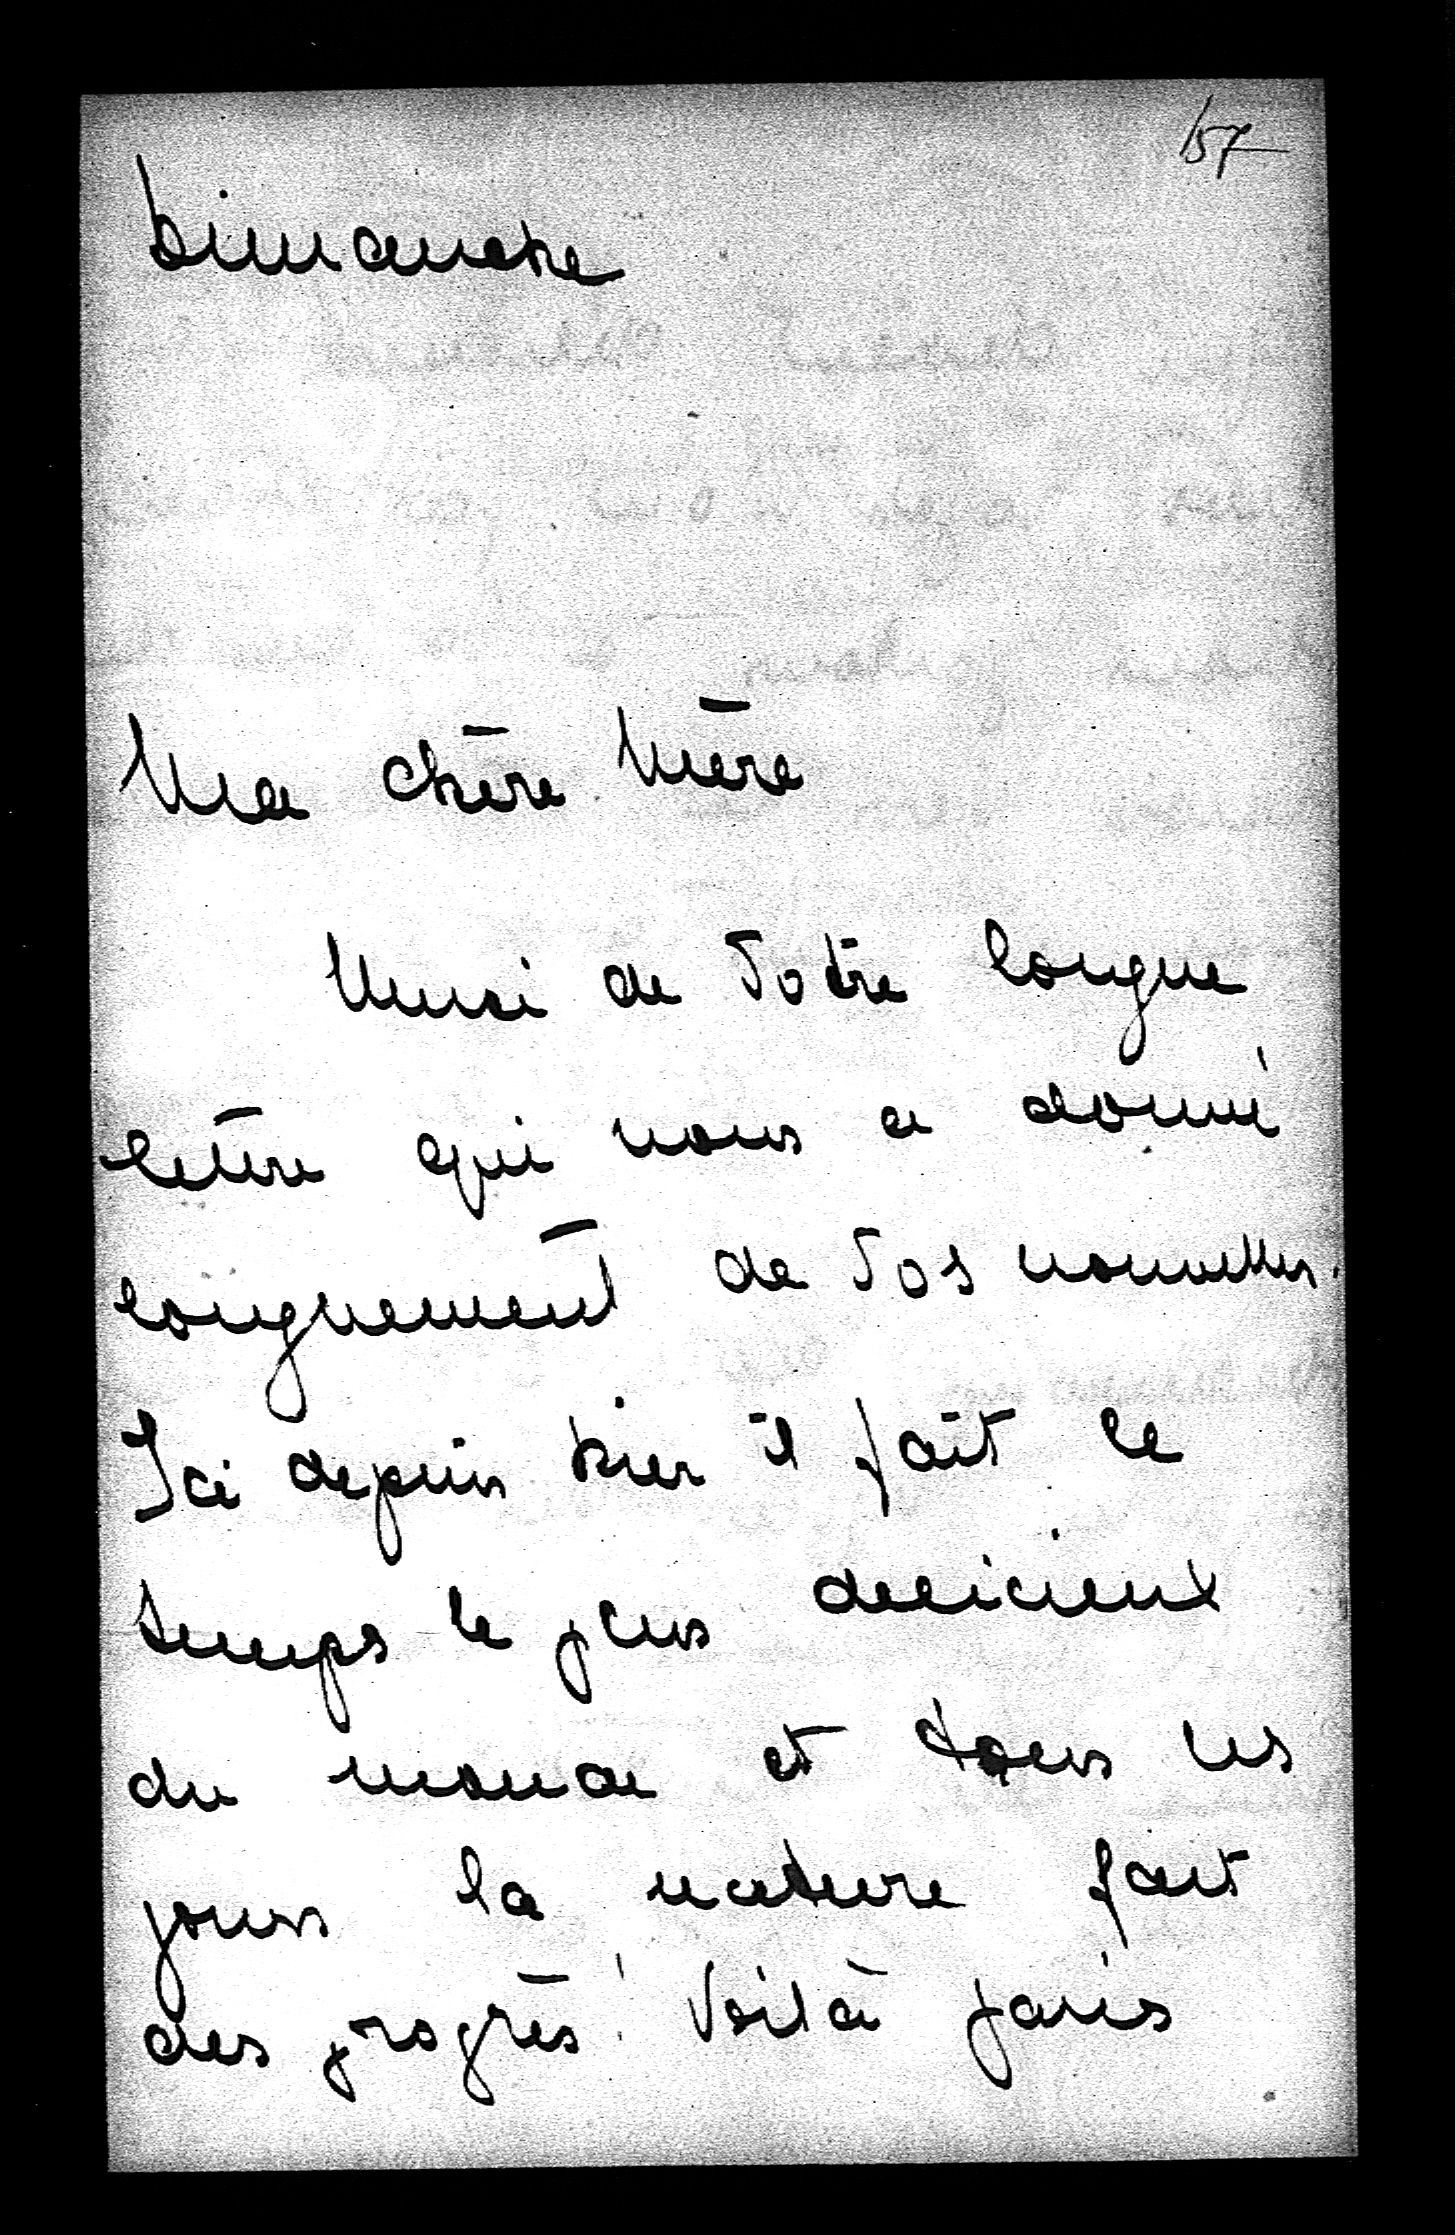 157
Dimanche
Ma chère Mère
Merci de Votre longue
lettre qui nous a donné
longuement de Vos nouvelles.
Ici depuis hier il fait le
temps le plus delicieux
du monde et tous les
jours la nature fait
des progrès! Voilà Paris